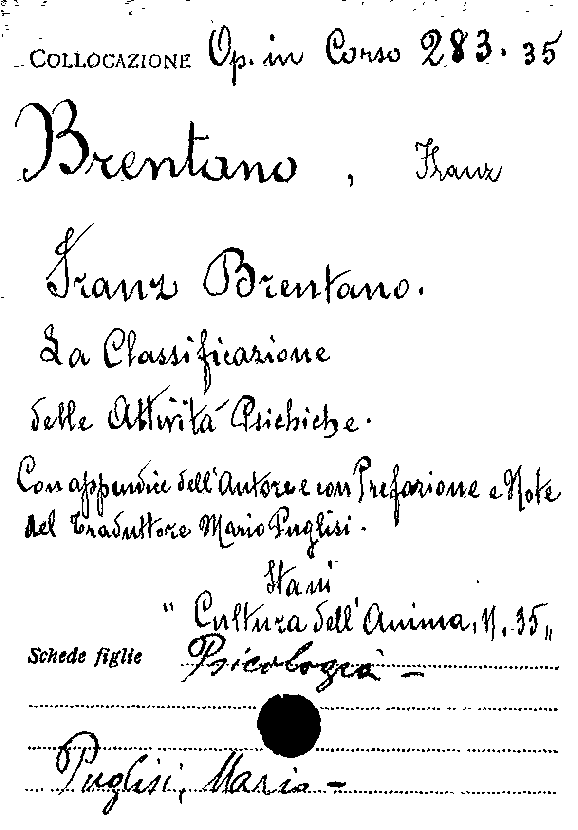 COLLOCAZIONE Op. in Corso 283. 35
Brentano, Franz
Franz Brentano.
La Classificazione
delle Attività Psichiche.
Con appendice dell'Autore e con Prefazione e Note
del Traduttore Mario Puglisi.
"Cultura dell'Anima, N. 35„
Schede figlie Psicologia –
Puglisi, Mario –